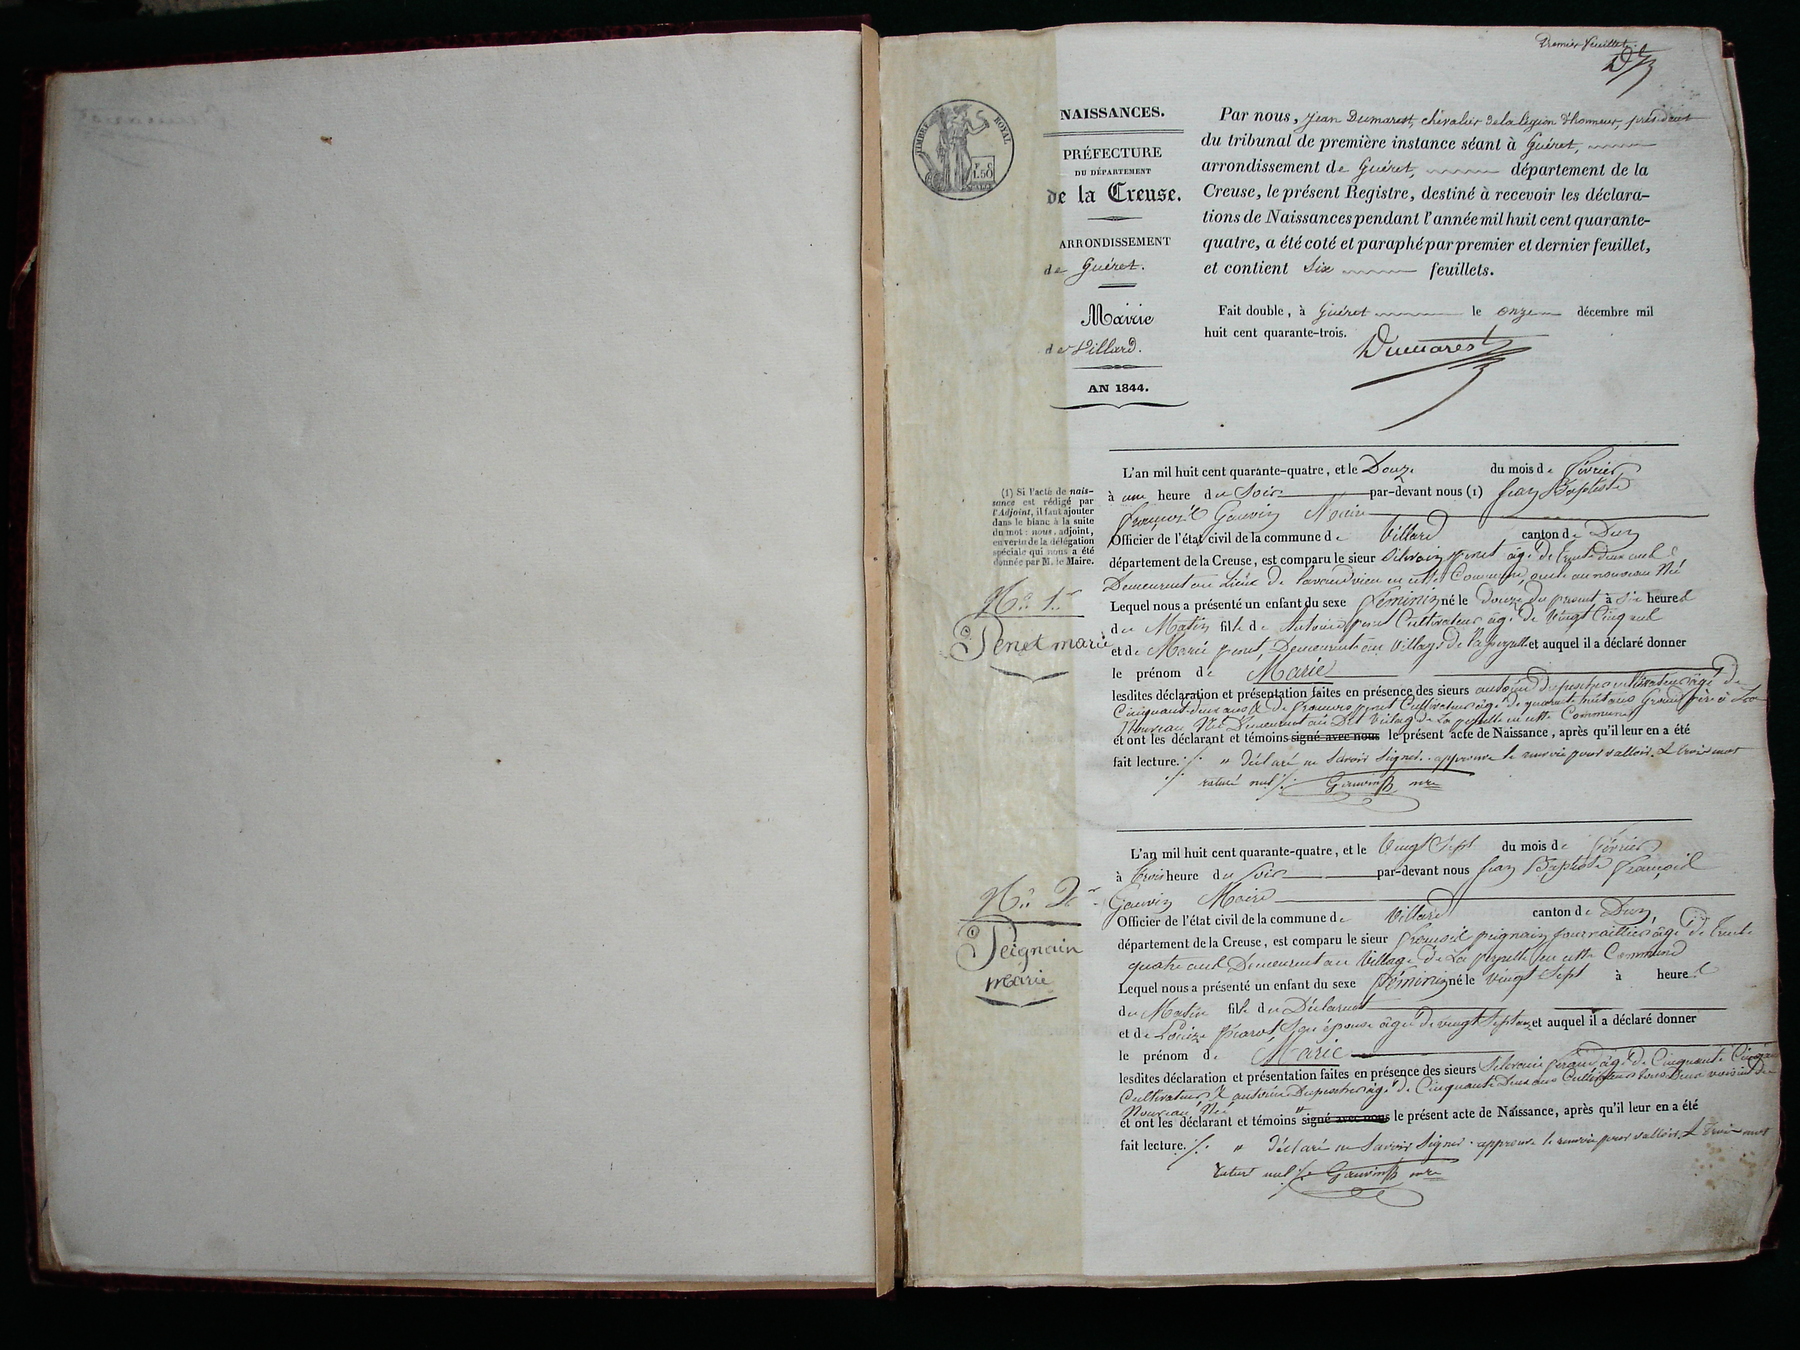 Premier feuillet.
TIMBRE ROYAL
F. C
1.50
NAISSANCES.
PRÉFECTURE
DU DÉPARTEMENT
de la Creuse.
ARRONDISSEMENT
de Guéret.
Mairie
de Villard.
AN 1844.
Par nous, Jean Dumarest, chevalier de la légion d'honneur, président
du tribunal de première instance séant à Guéret,
arrondissement de Guéret, département de la
Creuse, le présent Registre, destiné à recevoir les déclara-
tions de Naissances pendant l'année mil huit cent quarante-
quatre, a été coté et paraphé par premier et dernier feuillet,
et contient six feuillets.
Fait double, à Guéret le onze décembre mil
huit cent quarante-trois.
Dumarest
(1) Si l'acte de nais-
sance est rédigé par
l'Adjoint, il faut ajouter
dans le blanc à la suite
du mot : nous, adjoint,
en vertu de la délégation
spéciale qui nous a été
donnée par M. le Maire.
No. 1er
Penet marie
L'an mil huit cent quarante-quatre, et le Douze du mois de février
à une heure du Soir par-devant nous (1) Jean Baptiste
françois Gauvin Maire
Officier de l'état civil de la commune de Villard canton de Dun
département de la Creuse, est comparu le sieur Silvain penet âgé de trente deux ans
Demeurant au Lieux de lavaudvieu en cette Commune, oncle au nouveau Né
Lequel nous a présenté un enfant du sexe féminin né le douze du present à six heures
du Matin fille de Antoine penet Cultivateur âgé de vingt Cinq ans
et de Marie penet, Demeurant au Village de Lapeyrelle et auquel il a déclaré donner
le prénom de Marie
lesdites déclaration et présentation faites en présence des sieurs antoine Cultivateur âgé de
Cinquant deux ans & de françois penet Cultivateur âgé de quarante huit ans Grand père à
Nouveau Né Demeurant au Dit Village de La peyrelle en cette Commune
et ont les déclarant et témoins signé avec nous le présent acte de Naissance, après qu'il leur en a été
fait lecture. " déclaré ne Savoir Signer. approuve le renvoie pour valloir. & trois mot
raturé nul Gauvin mre
No. 2e
Peignain
marie
L'an mil huit cent quarante-quatre, et le Vingt Sept du mois de février
à trois heure du Soir par-devant nous Jean Baptiste françois
Gauvin Maire
Officier de l'état civil de la commune de Villard canton de Dun
département de la Creuse, est comparu le sieur françois peignain journaillier âgé de trente
quatre ans Demeurant au Village de La peyrelle en cette Commune
Lequel nous a présenté un enfant du sexe féminin né le vingt Sept à heures
du Matin fille du Déclarant
et de Louize Son épouse âgée de vingt Sept ans et auquel il a déclaré donner
le prénom de Marie
lesdites déclaration et présentation faites en présence des sieurs Silvain âgé de Cinquante Cinq ans
Cultivateur & antoine âgé de Cinquante Deux ans Cultivateur tous Deux voisins du
Nouveau Né
et ont les déclarant et témoins " signé avec nous le présent acte de Naissance, après qu'il leur en a été
fait lecture. " déclaré ne Savoir Signer. approuve le renvoie pour valloir. & trois mot
raturé nul Gauvin mre